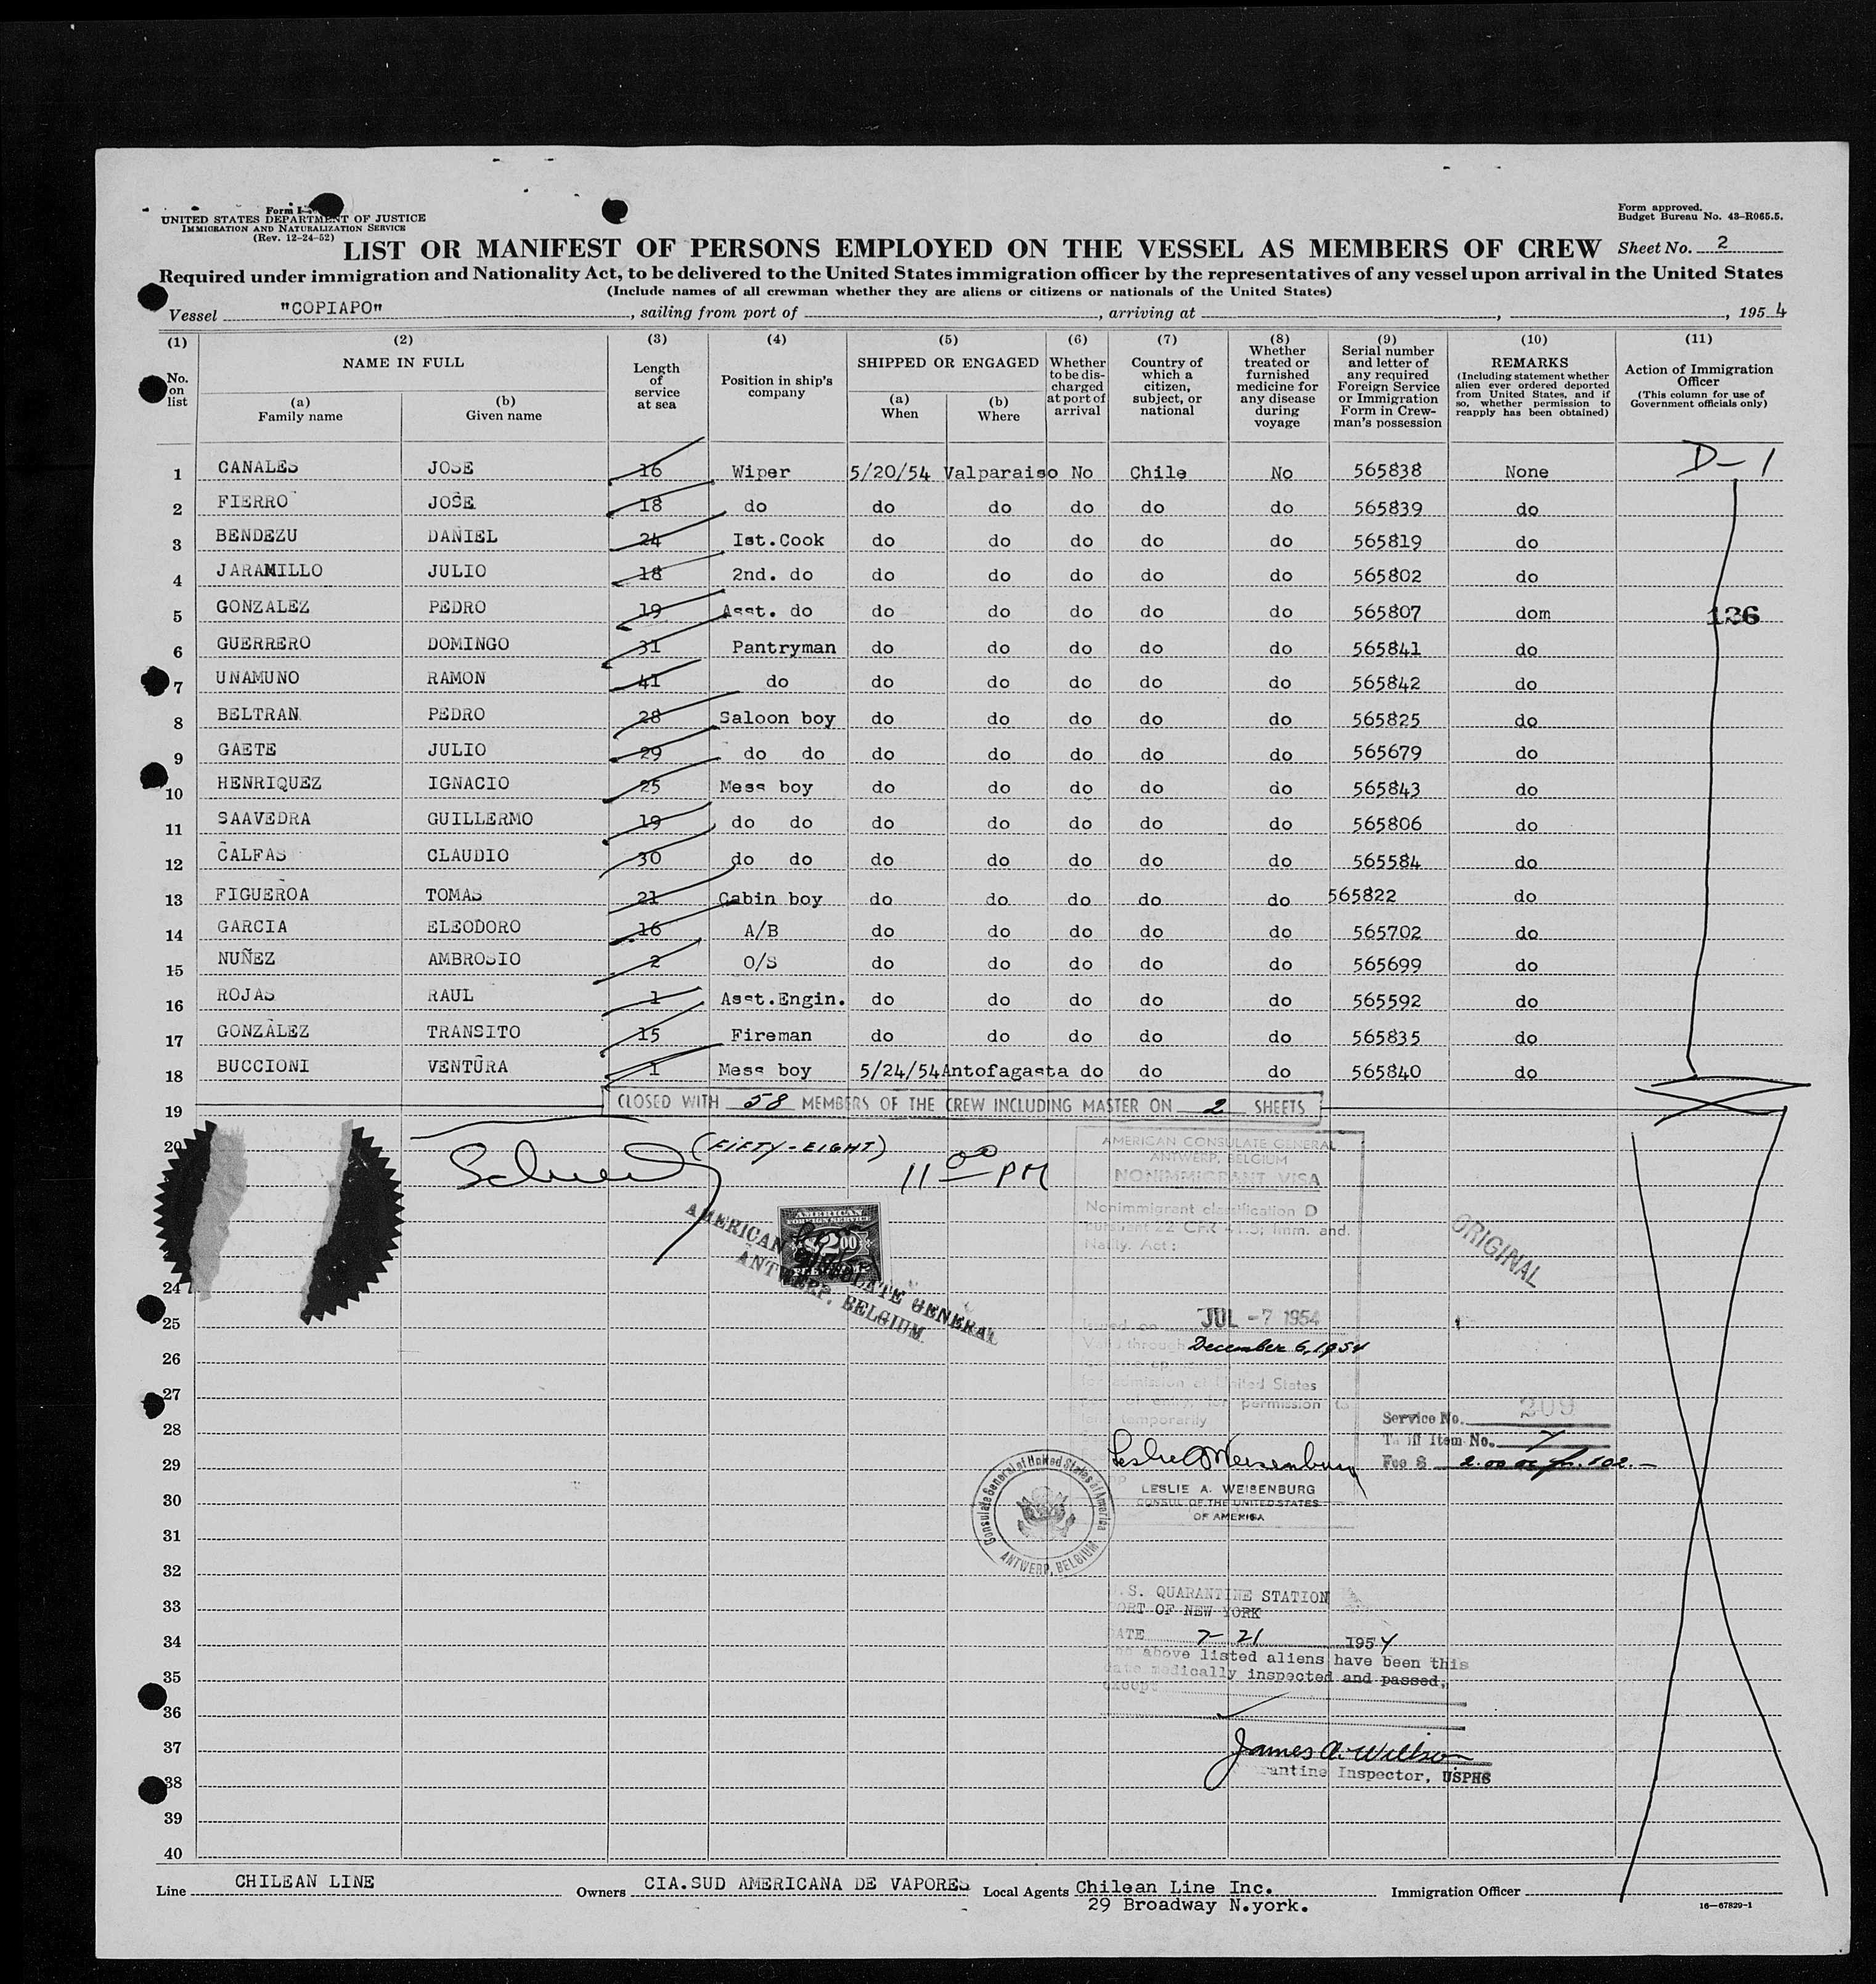 Form I-
UNITED STATES DEPARTMENT OF JUSTICE
IMMIGRATION AND NATURALIZATION SERVICE
(Rev. 12-24-52)
Form approved.
Budget Bureau No. 43-R065.5.
LIST OR MANIFEST OF PERSONS EMPLOYED ON THE VESSEL AS MEMBERS OF CREW Sheet No. 2
Required under immigration and Nationality Act, to be delivered to the United States immigration officer by the representatives of any vessel upon arrival in the United States
(Include names of all crewman whether they are aliens or citizens or nationals of the United States)
Vessel "COPIAPO", sailing from port of , arriving at , , 1954
(1) No. on list
(2) NAME IN FULL
(a) Family name
(b) Given name
(3) Length of service at sea
(4) Position in ship's company
(5) SHIPPED OR ENGAGED
(a) When
(b) Where
(6) Whether to be discharged at port of arrival
(7) Country of which a citizen, subject, or national
(8) Whether treated or furnished medicine for any disease during voyage
(9) Serial number and letter of any required Foreign Service or Immigration Form in Crewman's possession
(10) REMARKS (Including statement whether alien ever ordered deported from United States, and if so, whether permission to reapply has been obtained)
(11) Action of Immigration Officer (This column for use of Government officials only)
1 CANALES JOSE 16 Wiper 5/20/54 Valparaiso No Chile No 565838 None D-1
2 FIERRO JOSE 18 do do do do do do 565839 do
3 BENDEZU DANIEL 24 Ist.Cook do do do do do 565819 do
4 JARAMILLO JULIO 18 2nd. do do do do do do 565802 do
5 GONZALEZ PEDRO 19 Asst. do do do do do do 565807 dom 136
6 GUERRERO DOMINGO 31 Pantryman do do do do do 565841 do
7 UNAMUNO RAMON 41 do do do do do do 565842 do
8 BELTRAN PEDRO 28 Saloon boy do do do do do 565825 do
9 GAETE JULIO 29 do do do do do do do 565679 do
10 HENRIQUEZ IGNACIO 25 Mess boy do do do do do 565843 do
11 SAAVEDRA GUILLERMO 19 do do do do do do do 565806 do
12 CALFAS CLAUDIO 30 do do do do do do do 565584 do
13 FIGUEROA TOMAS 21 Cabin boy do do do do do 565822 do
14 GARCIA ELEODORO 16 A/B do do do do do 565702 do
15 NUÑEZ AMBROSIO 2 O/S do do do do do 565699 do
16 ROJAS RAUL 1 Asst.Engin. do do do do do 565592 do
17 GONZALEZ TRANSITO 15 Fireman do do do do do 565835 do
18 BUCCIONI VENTURA 1 Mess boy 5/24/54 Antofagasta do do do 565840 do
19 CLOSED WITH 58 MEMBERS OF THE CREW INCLUDING MASTER ON 2 SHEETS
20
(FIFTY-EIGHT)
11 00 PM
AMERICAN CONSULATE GENERAL
ANTWERP, BELGIUM
NONIMMIGRANT VISA
Nonimmigrant classification D
pursuant 22 CFR 41.5; Imm. and
Natly. Act:
AMERICAN
FOREIGN SERVICE
$2.00
AMERICAN CONSULATE GENERAL
ANTWERP, BELGIUM
ORIGINAL
24
25
Issued on JUL -7 1954
Valid through December 6, 1954
26
for admission at United States
27
port of entry, for permission to
land temporarily
28
Service No. 209
Tariff Item No. 7
Fee $ 2.00
29
LESLIE A. WEISENBURG
CONSUL OF THE UNITED STATES
OF AMERICA
Consulate General of United States of America
ANTWERP, BELGIUM
30
31
32
U.S. QUARANTINE STATION
33
PORT OF NEW YORK
34
DATE 7-21 1954
The above listed aliens have been this
35
date medically inspected and passed,
except
36
37
James A. Willson
Quarantine Inspector, USPHS
38
39
40
Line CHILEAN LINE Owners CIA.SUD AMERICANA DE VAPORES Local Agents Chilean Line Inc. Immigration Officer
29 Broadway N.york.
16—67829-1